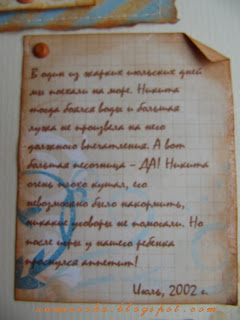 В один из жарких июльских дней
мы поехали на море. Никита
тогда боялся воды и большая
лужа не произвела на него
должного впечатления. А вот
большая песочница - ДА! Никита
очень плохо кушал, его
невозможно было накормить,
никакие уговоры не помогали. Но
после игры у нашего ребенка
проснулся аппетит!
Июль, 2002 г.